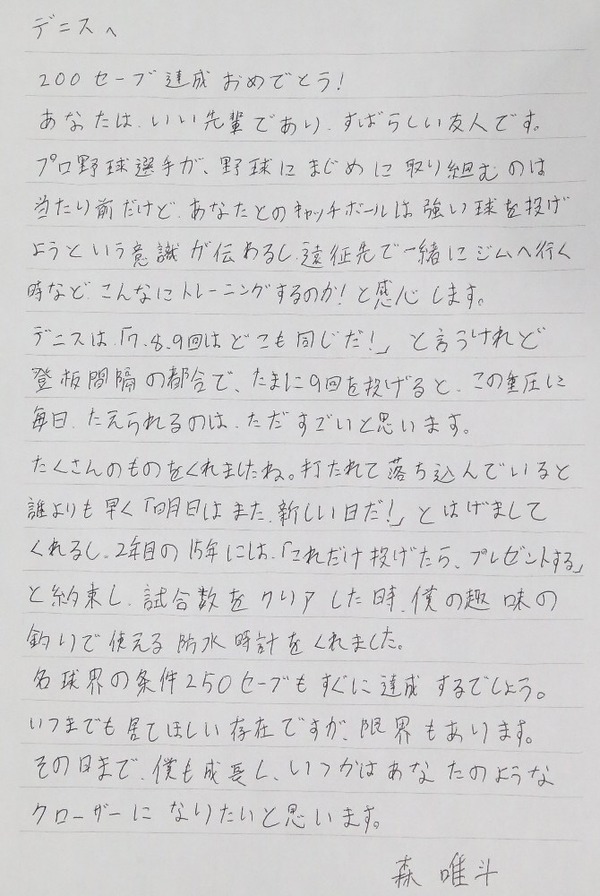 デニスへ
200セーブ達成おめでとう!
あなたは、いい先輩であり、すばらしい友人です。
プロ野球選手が、野球にまじめに取り組むのは
当たり前だけど、あなたとのキャッチボールは強い球を投げ
ようという意識が伝わるし、遠征先で一緒にジムへ行く
時など、こんなにトレーニングするのか!と感心します。
デニスは、「7、8、9回はどこも同じだ!」と言うけれど
登板間隔の都合で、たまに9回を投げると、この重圧に
毎日、たえられるのは、ただすごいと思います。
たくさんのものをくれましたね。打たれて落ち込んでいると
誰よりも早く「明日はまた、新しい日だ!」とはげまして
くれるし、2年目の15年には、「これだけ投げたら、プレゼントする」
と約束し、試合数をクリアした時、僕の趣味の
釣りで使える防水時計をくれました。
名球界の条件250セーブもすぐに達成するでしょう。
いつまでも居てほしい存在ですが、限界もあります。
その日まで、僕も成長し、いつかはあなたのような
クローザーになりたいと思います。
森 唯斗